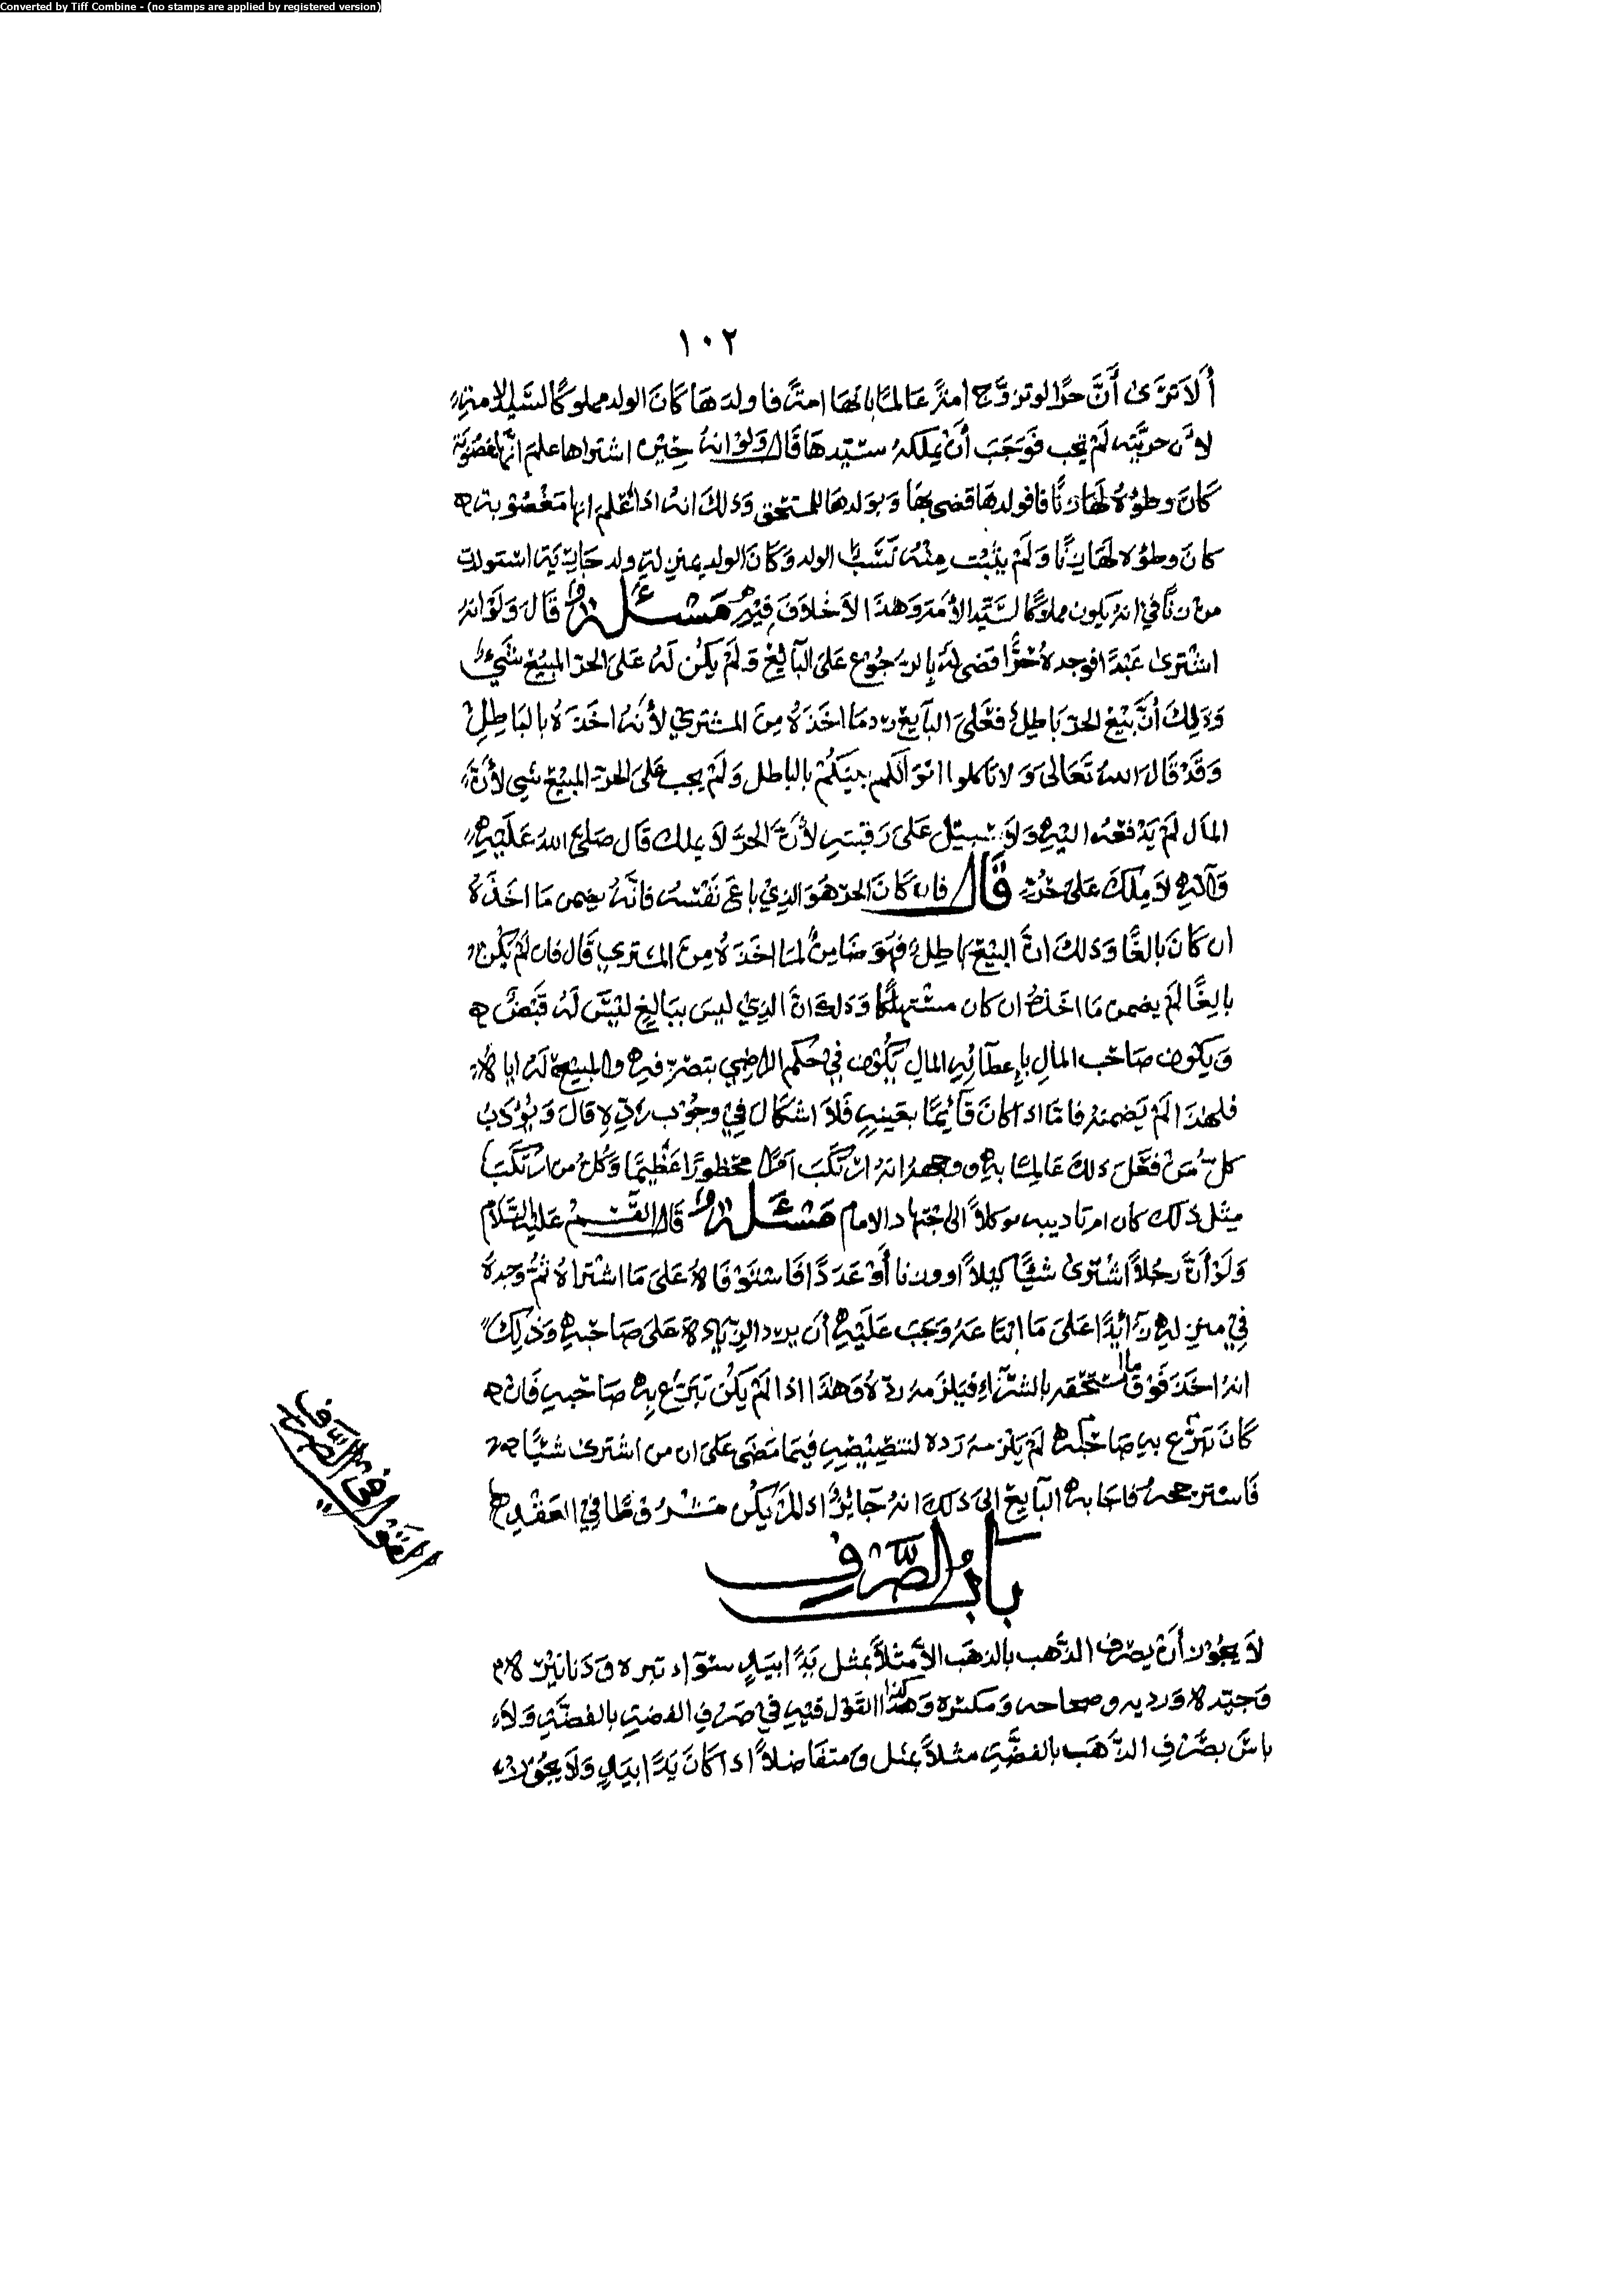 Converted by Tiff Combine - (no stamps are applied by registered version)
١٠٢
ألا ترى أن حرا لو تزوج امة عالما بانها امة فاولدها كان الولد مملوكا لسيد الامة
لأن حريته لم تجب فوجب أن يملكه سيدها قال ولو انه حين اشتراها علم انها مغصوبة
كان وطؤه لها زنا فاولدها قضى بها وبولدها للمستحق وذلك انه اذا علم انها مغصوبة
كان وطؤه لها زنا ولم يثبت منه نسب الولد وكان الولد بمنزلة ولد جارية استولدت
من زنا في انه يكون مملوكا لسيد الأمة وهذا لا خلاف فيه مسئلة قال ولو انه
اشترى عبدا فوجده حرا قضى له بالرجوع على البائع ولم يكن له على الحر المبيع شيء
وذلك أن بيع الحر باطل فعلى البائع رد ما اخذه من المشتري لأنه اخذه بالباطل
وقد قال الله تعالى ولا تاكلوا اموالكم بينكم بالباطل ولم يجب على الحر المبيع شي لأن
المال لم يدفعه اليه ولا سبيل على رقبته لأن الحر لا يملك قال صلى الله عليه
وآله لا ملك على حر قال فان كان الحر هو الذي باع نفسه فانه يضمن ما اخذه
ان كان بالغا وذلك ان البيع باطل فهو ضامن لما اخذه من المشتري قال فان لم يكن
بالغا لم يضمن ما اخذه ان كان مستهلكا وذلك ان الذي ليس ببالغ ليس له قبض
ويكون صاحب المال بإعطائه المال يكون في حكم الراضي بتصرفه والمبيح له اياه
فلهذا لم يضمنه فاما اذا كان قائما بعينه فلا اشكال في وجوب رده قال ويؤدب
كل من فعل ذلك عالما به ووجهه انه ارتكب امرا محظورا عظيما وكل من ارتكب
مثل ذلك كان امر تاديبه موكلا الى اجتهاد الامام مسئلة قال القسم عليه السلام
ولو أن رجلا اشترى شيئا كيلا او وزنا أو عددا فاستوفاه على ما اشتراه ثم وجده
في منزله زائدا على ما ابتاعه وجب عليه أن يرد الزيادة على صاحبه وذلك
انه اخذ فوق ما استحقه بالشراء فيلزمه رده وهذا اذا لم يكن تبرع به صاحبه فان
كان تبرع به صاحبه لم يلزمه رده فيما مضى على ان من اشترى شيئا
فاسترجحه فاجابه البائع الى ذلك انه جائز اذا لم يكن مشروطا في العقد
القول في الصرف
باب الصرف
لا يجوز أن يصرف الذهب بالذهب الا مثلا بمثل يدا بيد سواء تبره ودنانيره
وجيده ورديه وصحاحه ومكسره وهكذا القول فيه في صرف الفضة بالفضة ولا
باس بصرف الذهب بالفضة مثلا بمثل ومتفاضلا اذا كان يدا بيد ولا يجوز